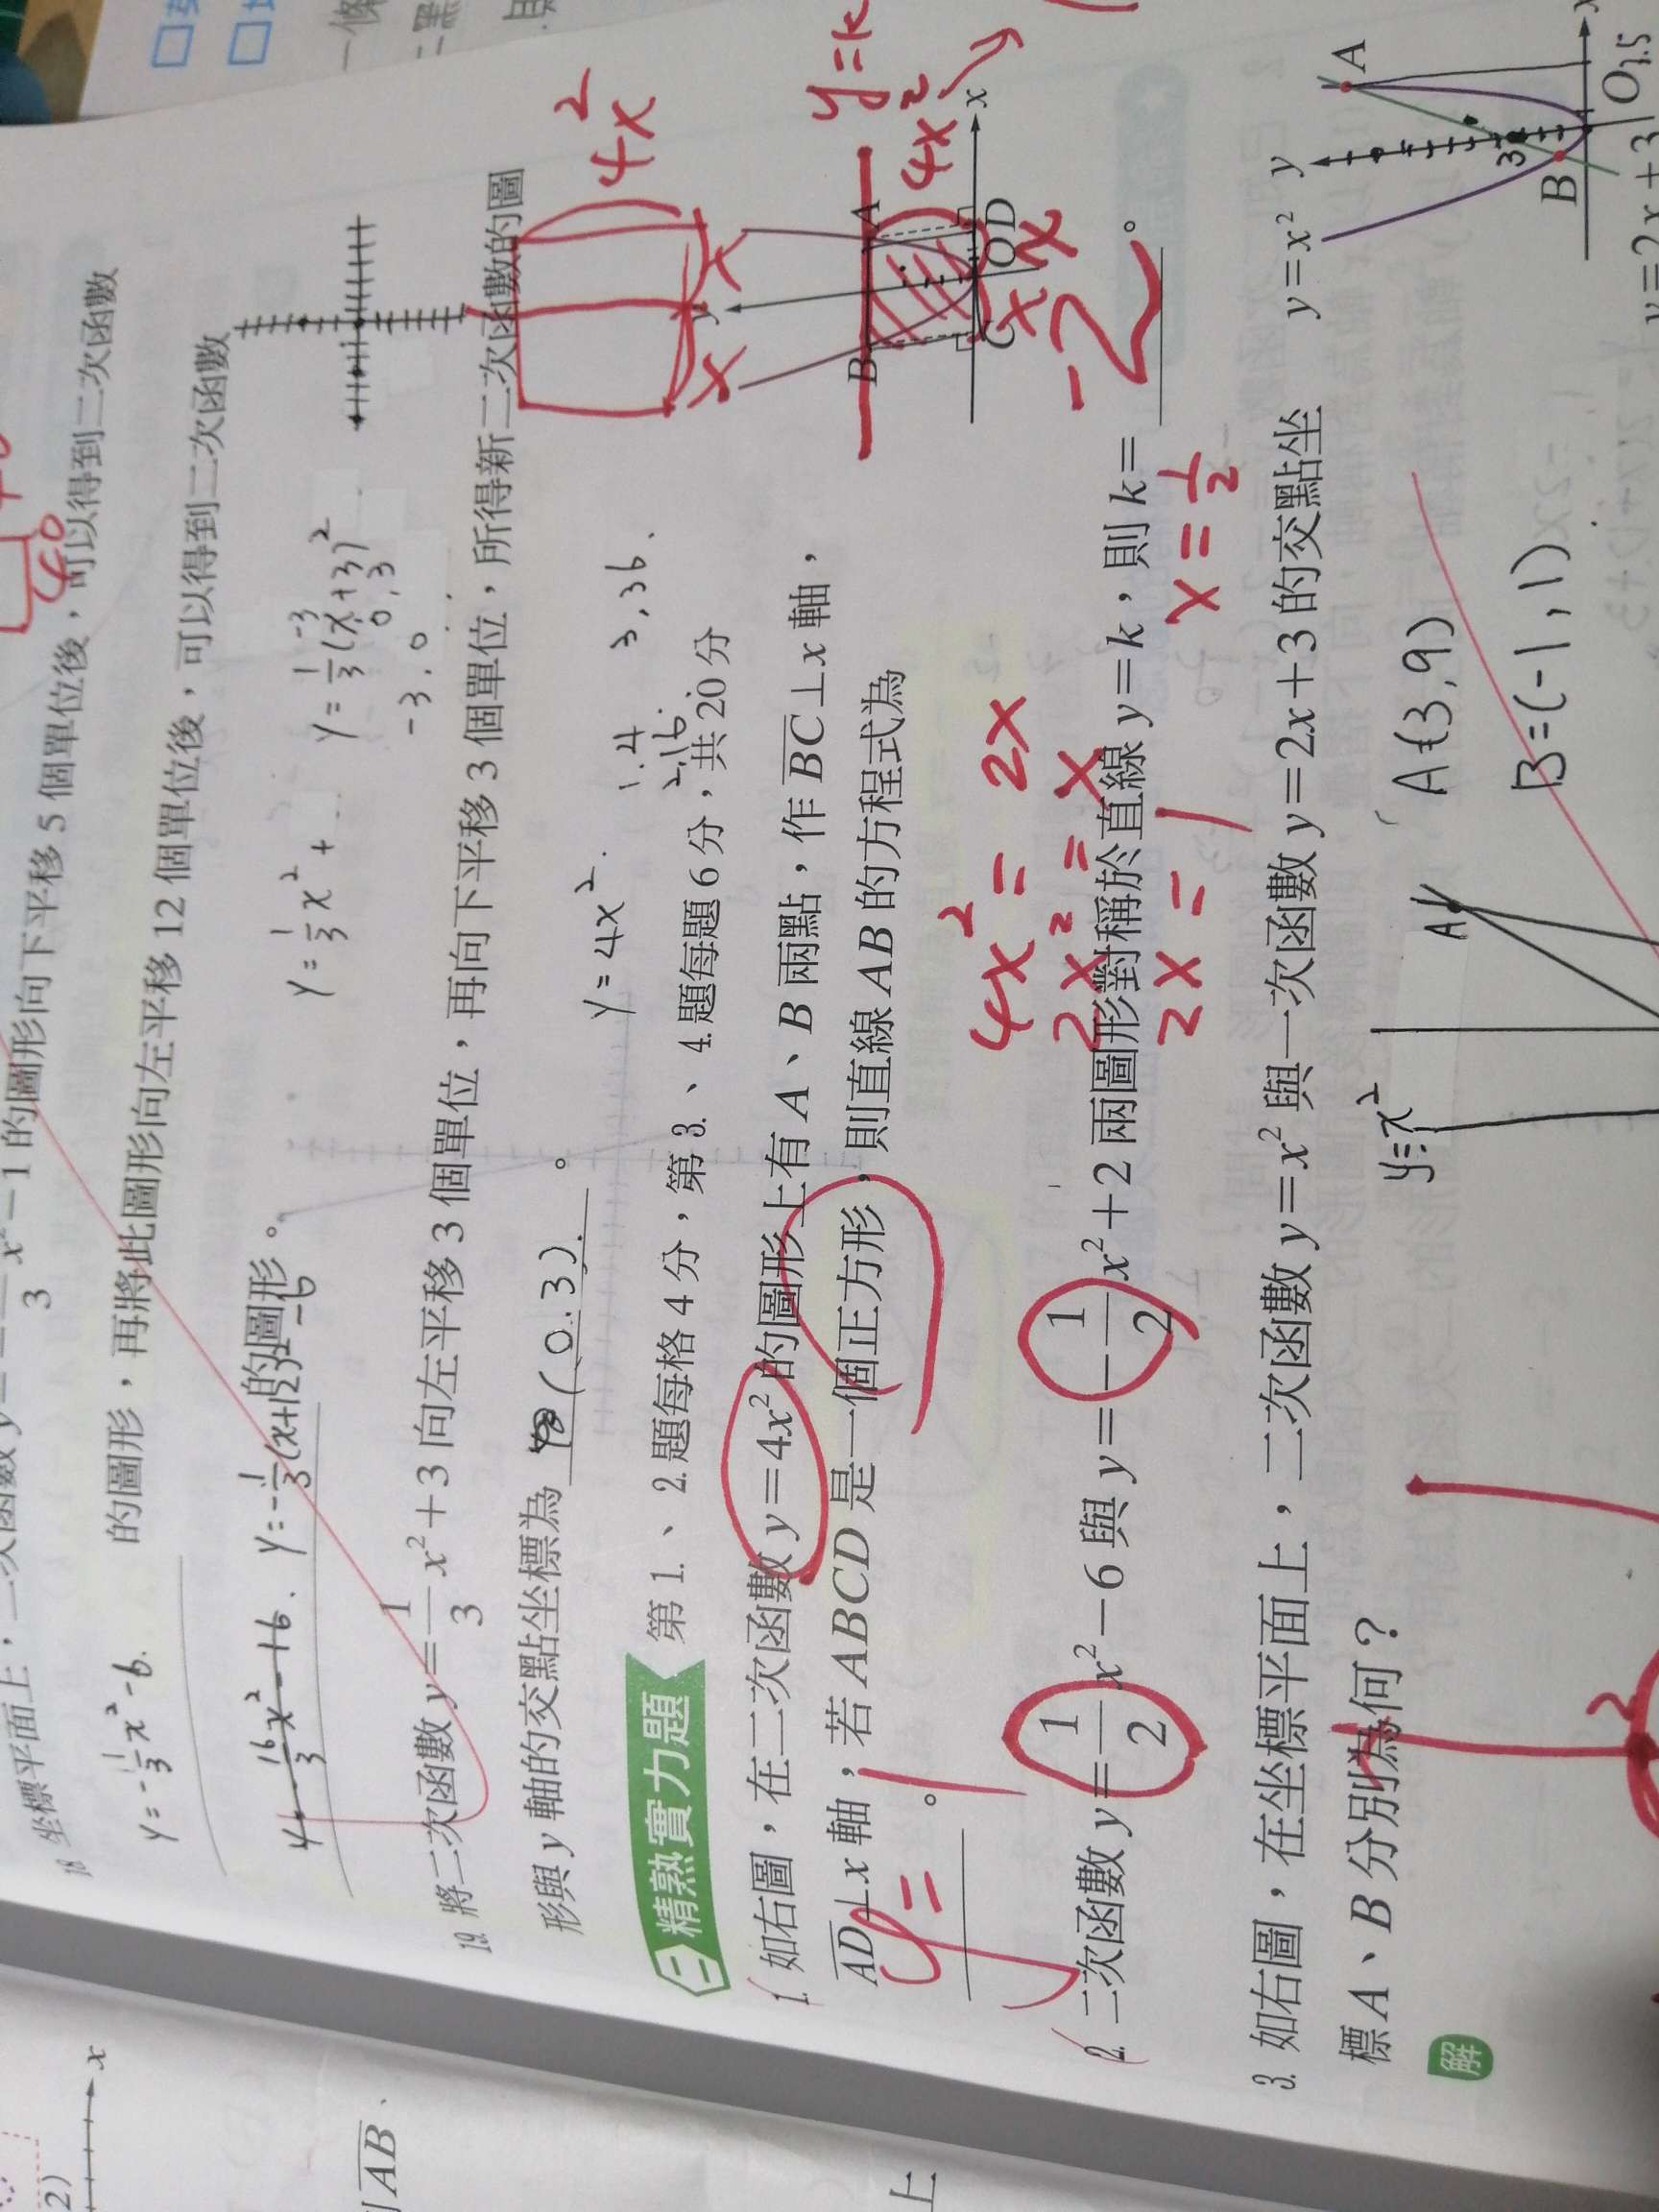 18. 坐標平面上，二次函數 y=
3
x²-1 的圖形向下平移 5 個單位後，可以得到二次函數
y=-1/3x²-6. 的圖形，再將此圖形向左平移 12 個單位後，可以得到二次函數
的圖形。
y=-1/3(x+12)²-6
y=1/3x²+
y=1/3(x+3)²
-3
0,3
-3,0
19. 將二次函數 y=1/3x²+3 向左平移 3 個單位，再向下平移 3 個單位，所得新二次函數的圖
形與 y 軸的交點坐標為 (0.3). 。
y=4x².
1.4
2.16.
3,36.
三 精熟實力題 第 1.、2.題每格 4 分，第 3.、4.題每題 6 分，共 20 分
1. 如右圖，在二次函數 y=4x² 的圖形上有 A、B 兩點，作 BC⊥x 軸，
AD⊥x 軸，若 ABCD 是一個正方形，則直線 AB 的方程式為
y=1 。
4x²=2x
2x²=x
2x=1
x=1/2
4x²
x
x
y
B
A
y=k
4x²
C
O
D
x
x
x
2. 二次函數 y=1/2x²-6 與 y=-1/2x²+2 兩圖形對稱於直線 y=k，則 k= -2 。
3. 如右圖，在坐標平面上，二次函數 y=x² 與一次函數 y=2x+3 的交點坐
標 A、B 分別為何？
解
y=x²
y
A
3
B
O
1.5
y=2x+3
y=x²
A
A(3,9)
B=(-1,1)
2)
x
AB、
上